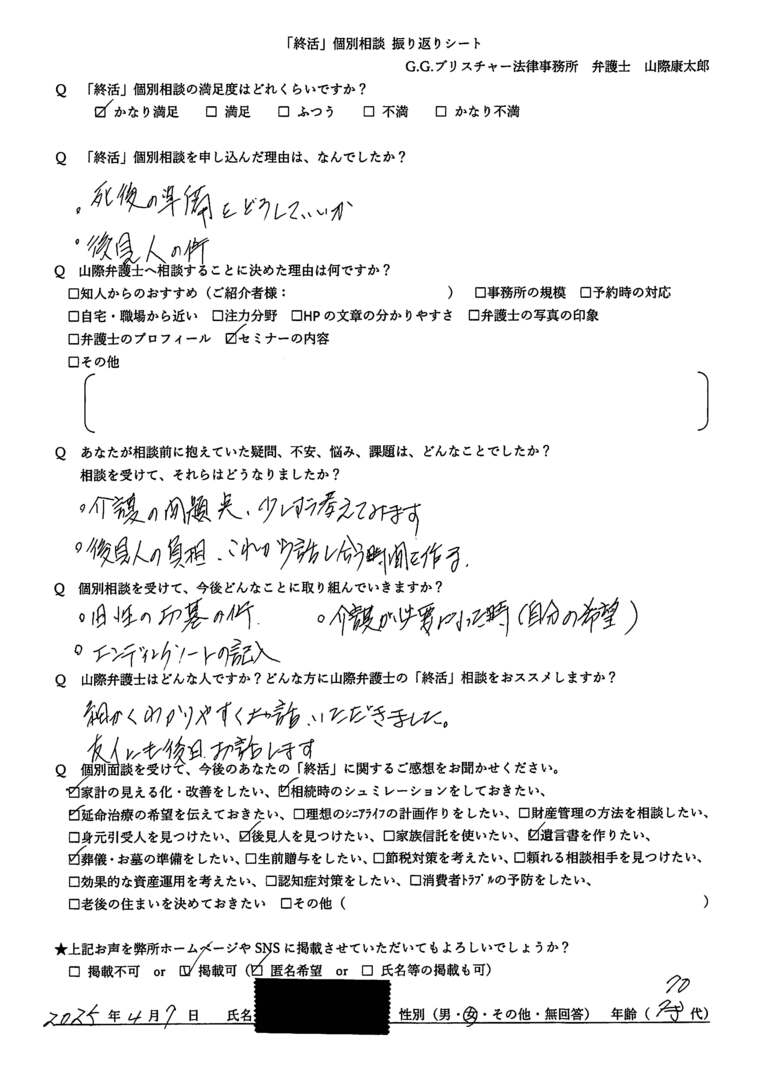 「終活」個別相談 振り返りシート
G.G.ブリスチャー法律事務所　弁護士　山際康太郎
Q　「終活」個別相談の満足度はどれくらいですか？
☑ かなり満足　☐ 満足　☐ ふつう　☐ 不満　☐ かなり不満
Q　「終活」個別相談を申し込んだ理由は、なんでしたか？
・死後の準備をどうしていいか
・後見人の件
Q　山際弁護士へ相談することに決めた理由は何ですか？
☐知人からのおすすめ（ご紹介者様：　　　　）　☐事務所の規模　☐予約時の対応
☐自宅・職場から近い　☐注力分野　☐HPの文章の分かりやすさ　☐弁護士の写真の印象
☐弁護士のプロフィール　☑セミナーの内容
☐その他
Q　あなたが相談前に抱えていた疑問、不安、悩み、課題は、どんなことでしたか？
相談を受けて、それらはどうなりましたか？
・介護の問題点、少しずつ考えてみます
・後見人の負担、これから話し合う時間を作る。
Q　個別相談を受けて、今後どんなことに取り組んでいきますか？
・旧姓のお墓の件　・介護が必要になった時（自分の希望）
・エンディングノートの記入
Q　山際弁護士はどんな人ですか？どんな方に山際弁護士の「終活」相談をおススメしますか？
細かくわかりやすくお話、いただきました。
友人にも後日お話します
Q　個別面談を受けて、今後のあなたの「終活」に関するご感想をお聞かせください。
☑家計の見える化・改善をしたい、☑相続時のシュミレーションをしておきたい、
☑延命治療の希望を伝えておきたい、☐理想のシニアライフの計画作りをしたい、☐財産管理の方法を相談したい、
☐身元引受人を見つけたい、☑後見人を見つけたい、☐家族信託を使いたい、☑遺言書を作りたい、
☑葬儀・お墓の準備をしたい、☐生前贈与をしたい、☐節税対策を考えたい、☐頼れる相談相手を見つけたい、
☐効果的な資産運用を考えたい、☐認知症対策をしたい、☐消費者トラブルの予防をしたい、
☐老後の住まいを決めておきたい　☐その他（　　　　）
★上記お声を弊所ホームページやSNSに掲載させていただいてもよろしいでしょうか？
☐ 掲載不可　or　☑ 掲載可（☑ 匿名希望　or　☐ 氏名等の掲載も可）
2025年4月7日　氏名　性別（男・女・その他・無回答）　年齢（70代）